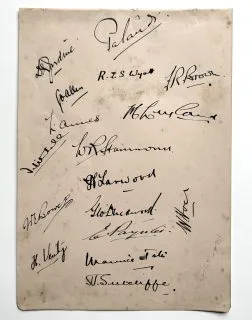 Pataudi
D R Jardine
R.E.S. Wyatt
F R Brown
G O Allen
L Ames
W R Hammond
H Larwood
Geo Duckworth
W Voce
W E Bowes
E Paynter
H. Verity
Maurice Tate
H. Sutcliffe.